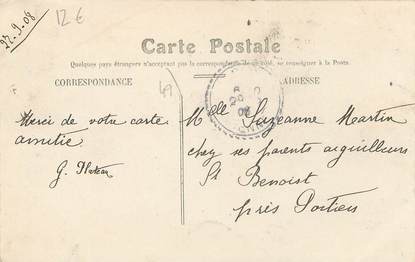 27-9-08
12 €
Carte Postale
Quelques pays étrangers n'acceptant pas la correspondance de ce côté, se renseigner à la Poste.
CORRESPONDANCE
ADRESSE
49
Merci de votre carte
amitié
G.
Melle Suzeanne Martin
chez ses parents aiguilleurs
St Benoist
près Poitiers